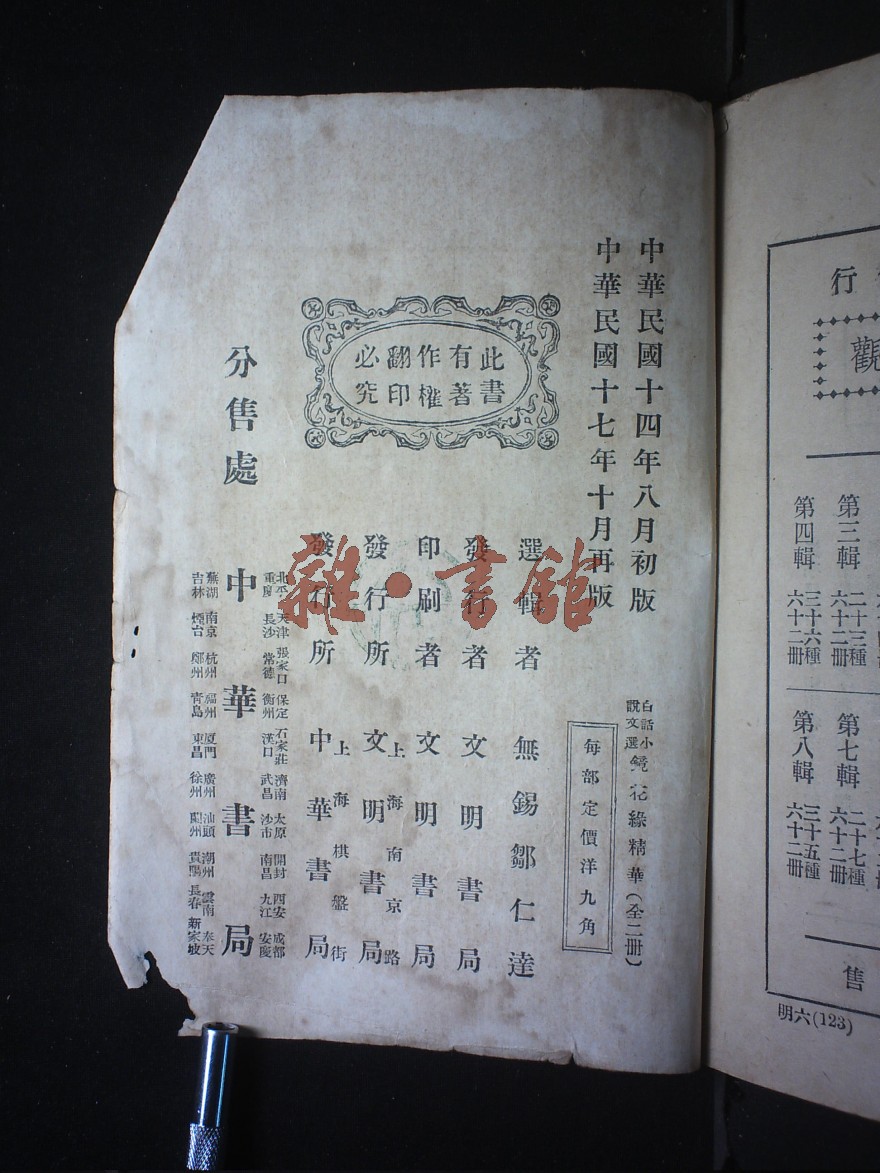 中華民國十四年八月初版
中華民國十七年十月再版
白話小
說文選
鏡花緣精華(全二册)
每部定價洋九角
此書
有著
作權
翻印
必究
選輯者 無錫鄒仁達
發行者 文明書局
印刷者 文明書局
上海南京路
發行所 文明書局
上海棋盤街
發行所 中華書局
分售處 中華書局
北平 天津 張家口 保定 石家莊 濟南 太原 開封 西安 成都
重慶 長沙 常德 衡州 漢口 武昌 沙市 南昌 九江 安慶
蕪湖 南京 杭州 福州 廈門 廣州 汕頭 潮州 雲南 奉天
吉林 煙台 鄭州 青島 東昌 徐州 蘭州 貴陽 長春 新家坡
雜·書館
行
觀
第三輯 二十三種 六十二册
第四輯 三十六種 六十二册
第七輯 二十七種 六十二册
第八輯 三十五種 六十二册
售
明六(123)